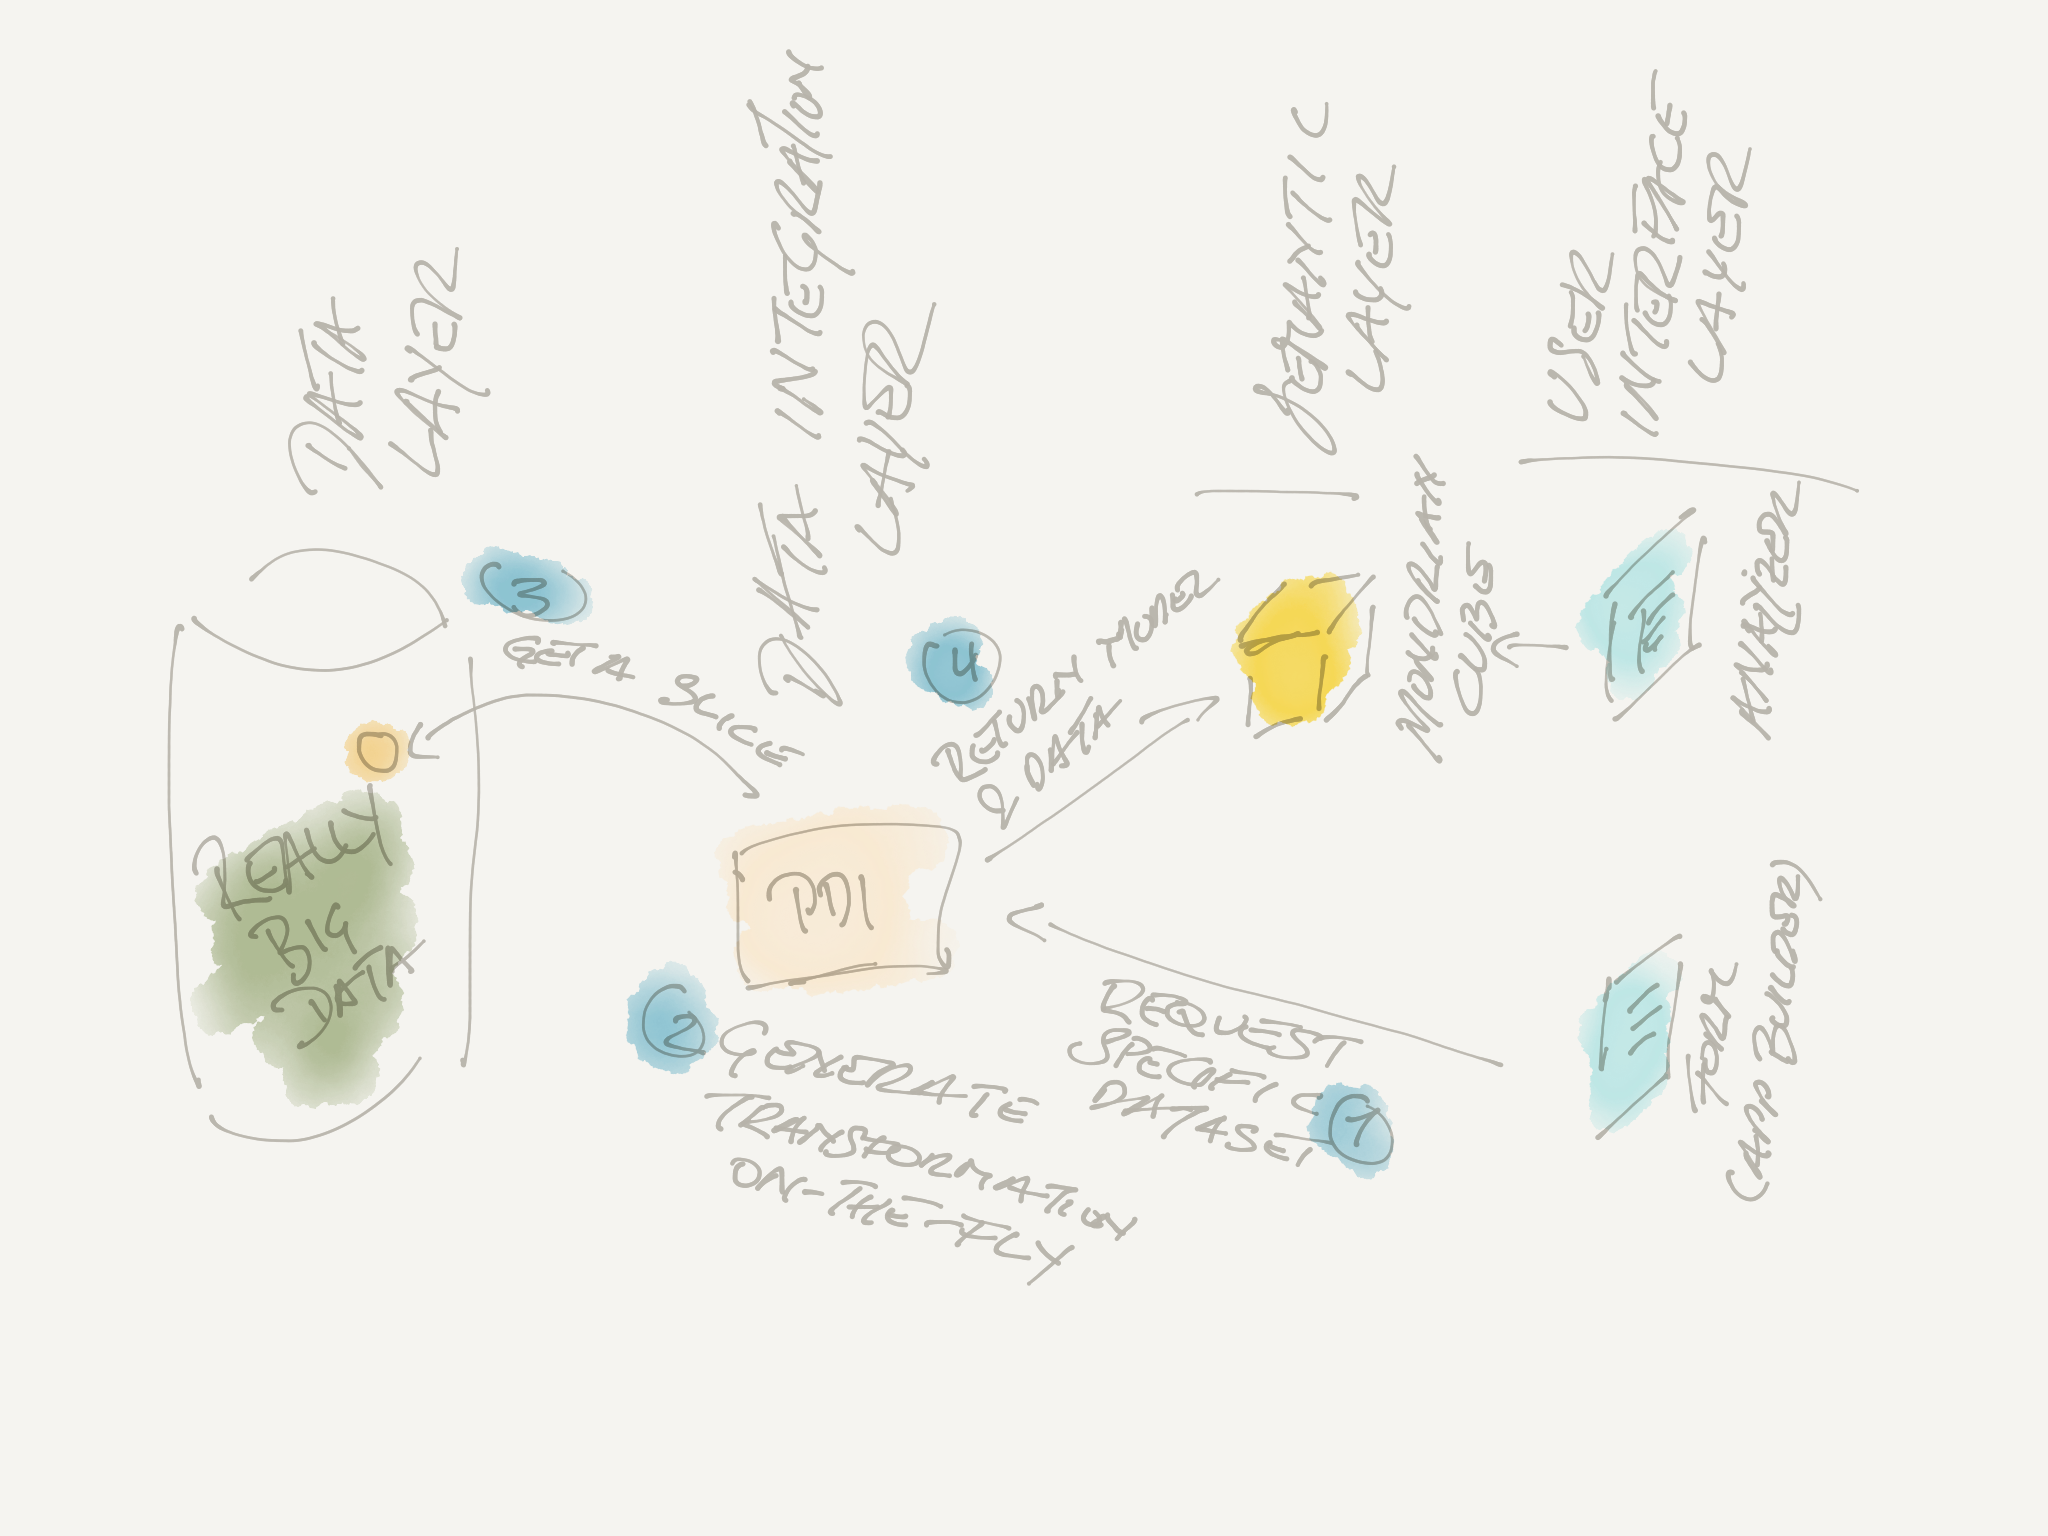 DATA
LAYER
DATA INTEGRATION
LAYER
SEMANTIC
LAYER
USER
INTERFACE
LAYER
3
GET A SLICE
4
RETURN MODEL
& DATA
MONDRIAN
CUBE
ANALYZER
REALLY
BIG
DATA
PDI
2
GENERATE
TRANSFORMATION
ON-THE-FLY
REQUEST
SPECIFIC
DATASET
1
FORM
(APP BUILDER)